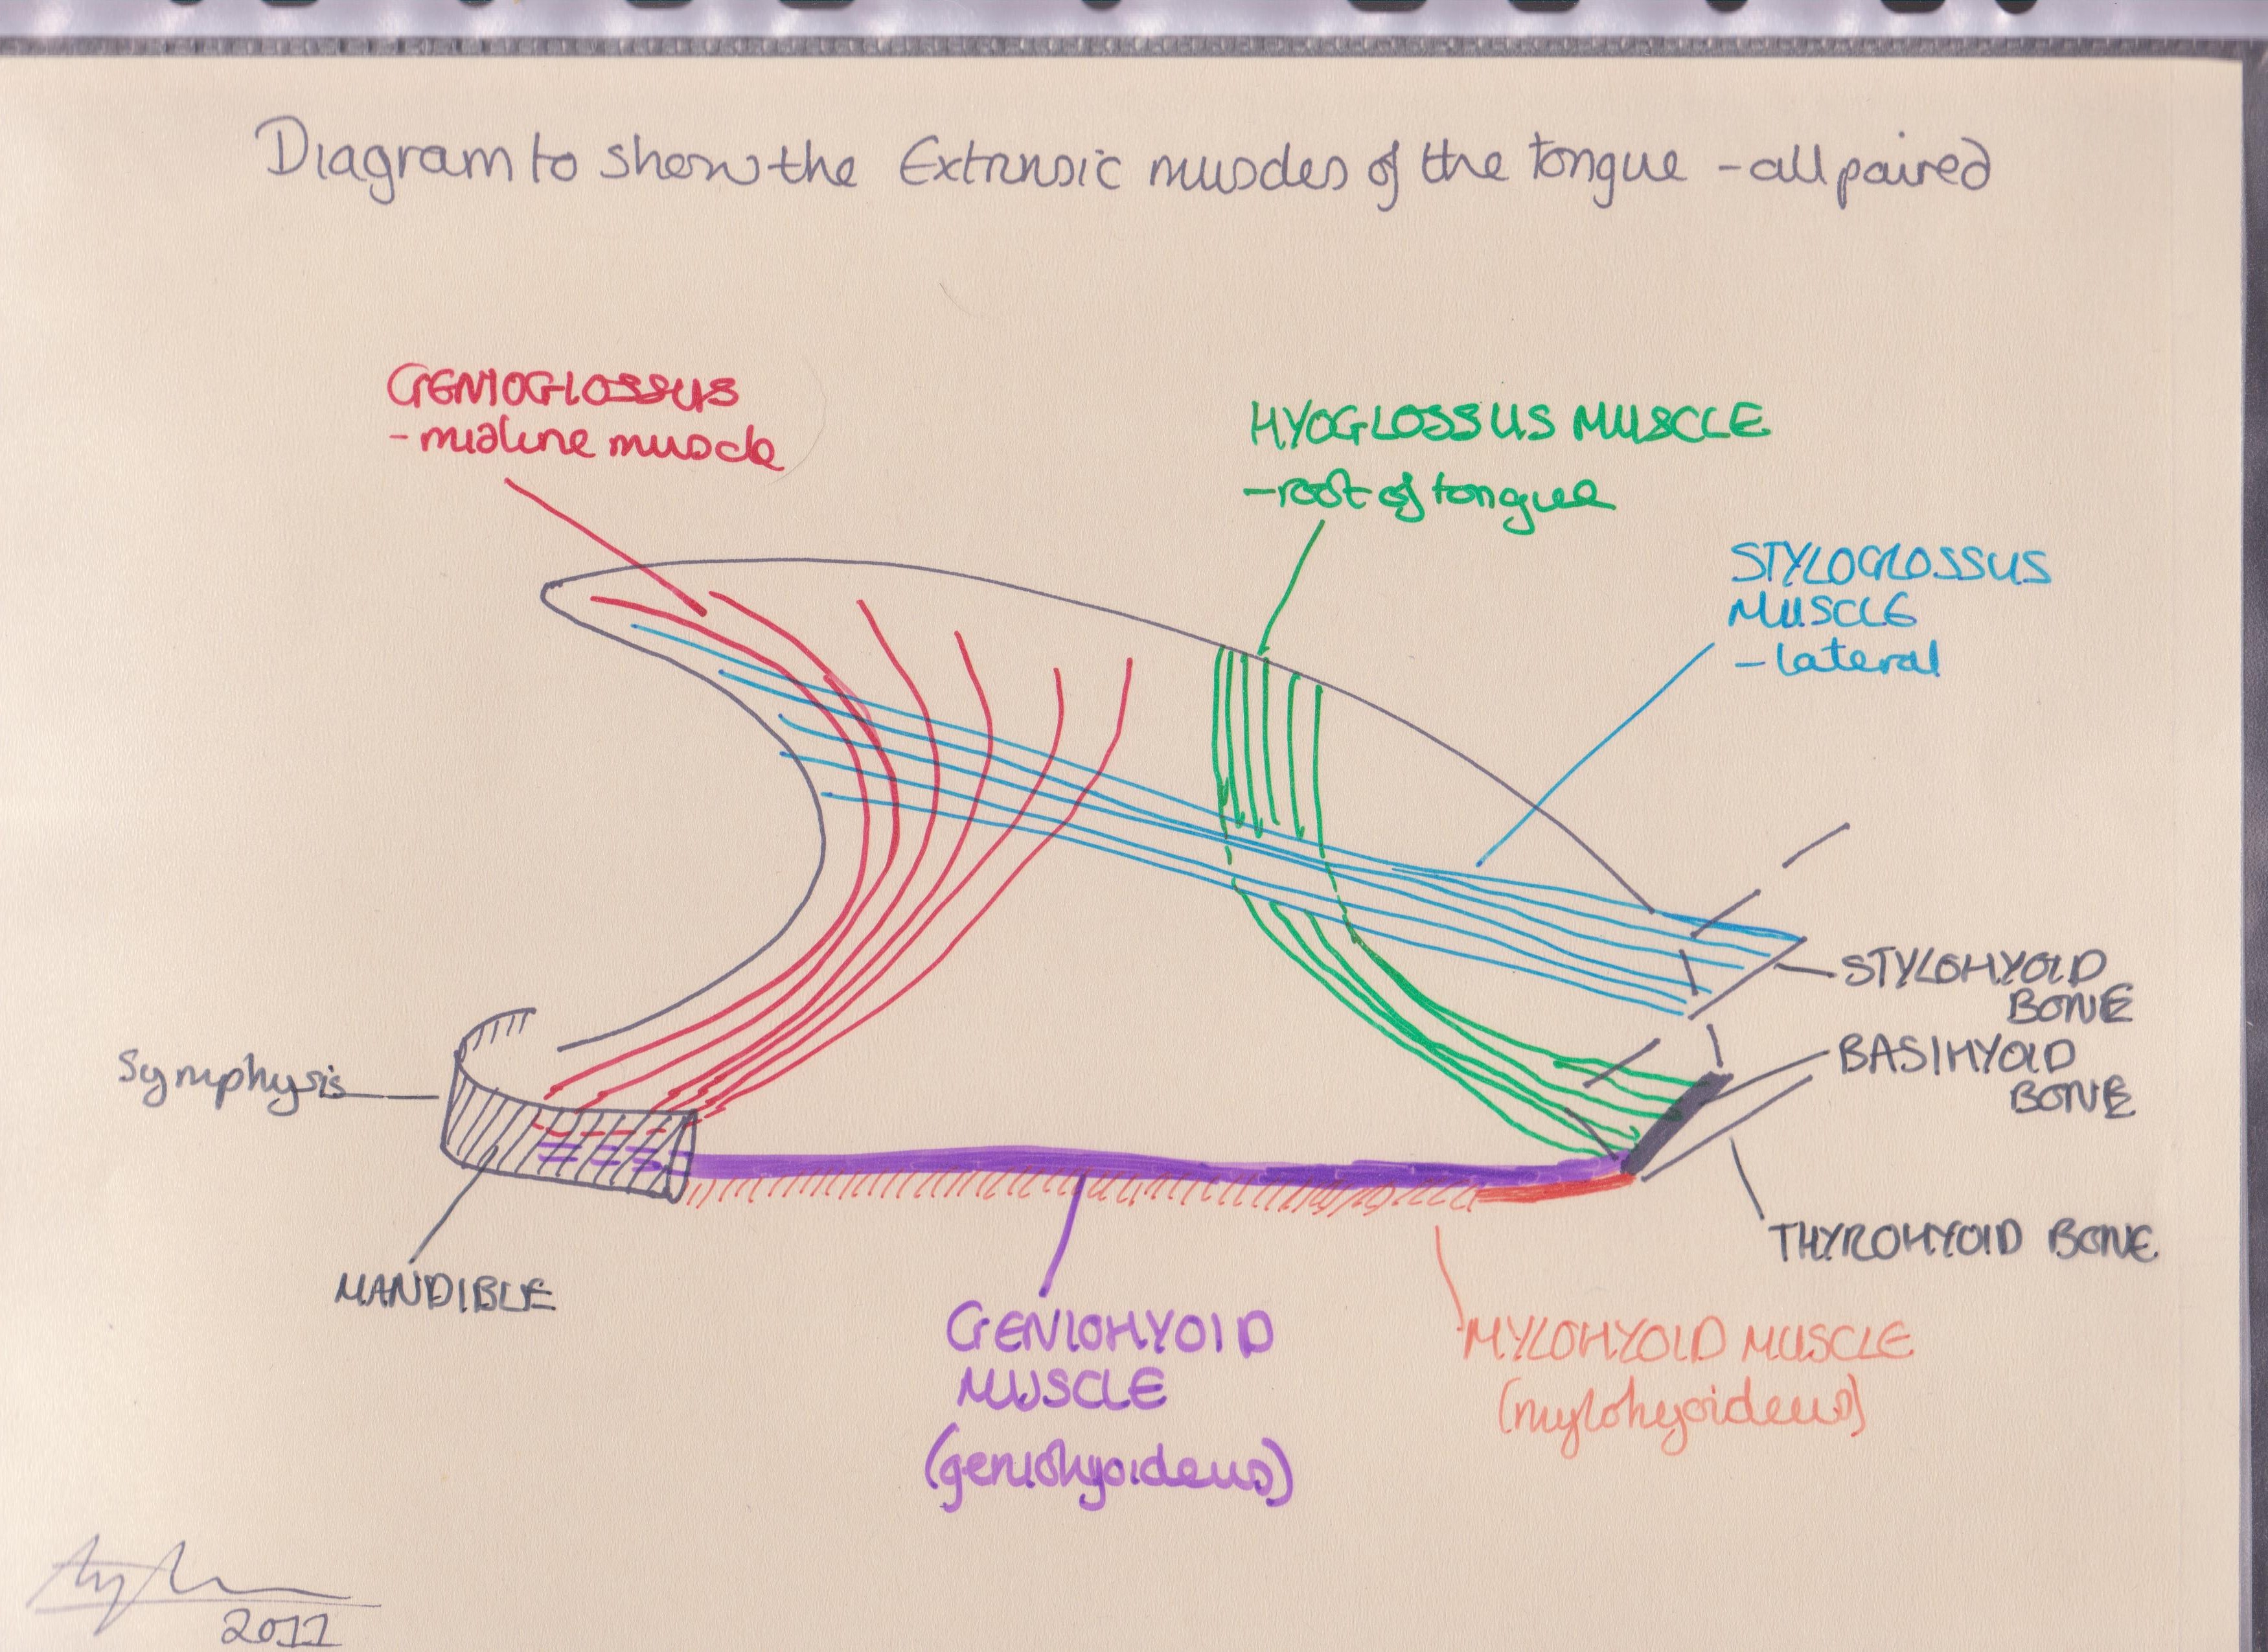 Diagram to show the Extrinsic muscles of the tongue - all paired
GENIOGLOSSUS
- midline muscle
HYOGLOSSUS MUSCLE
- root of tongue
STYLOGLOSSUS
MUSCLE
- lateral
STYLOHYOID
BONE
BASIHYOID
BONE
Symphysis
THYROHYOID BONE
MANDIBLE
GENIOHYOID
MUSCLE
(geniohyoideus)
MYLOHYOID MUSCLE
(mylohyoideus)
2011